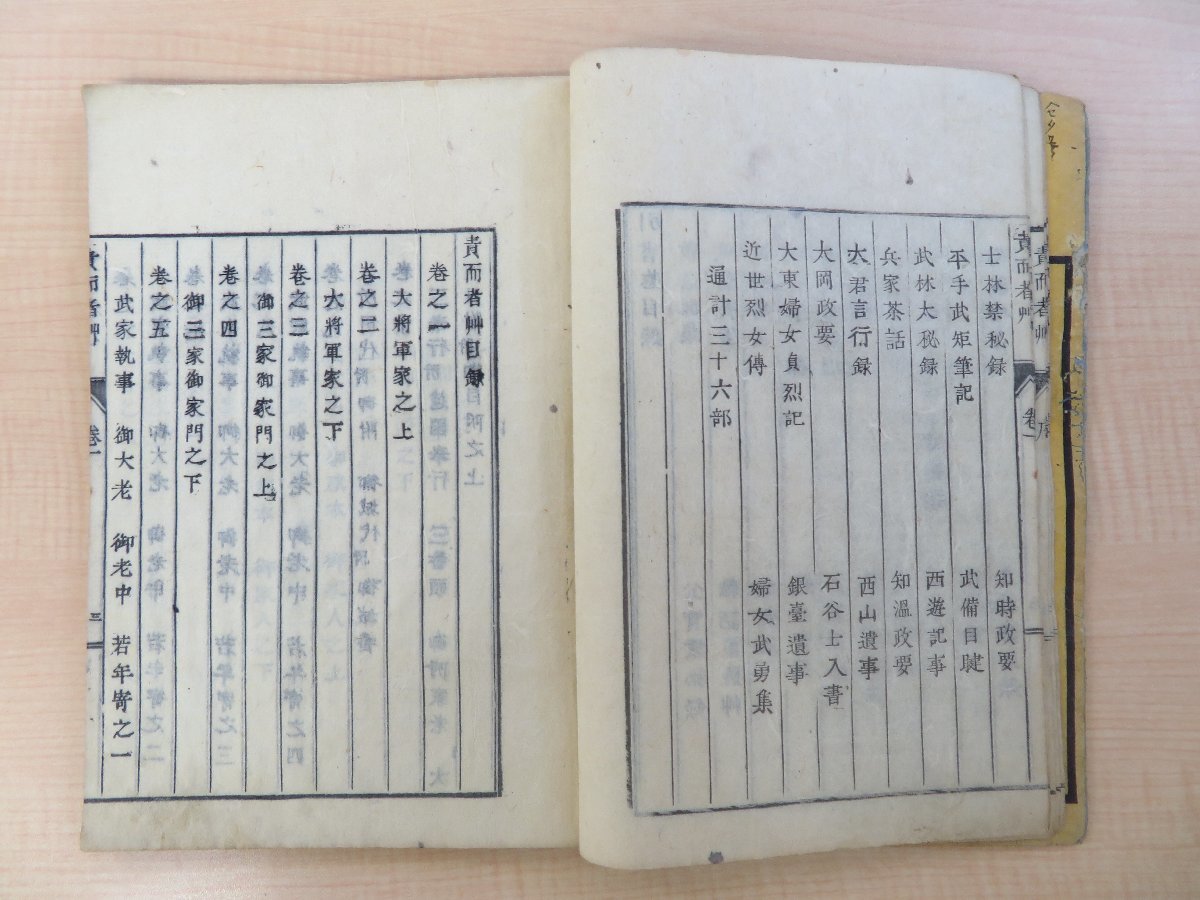 士林禁秘録　知時政要
平手武矩筆記　武備目睫
武林大秘録　西遊記事
兵家茶話　知溫政要
大君言行録　西山遺事
大岡政要　石谷士入書
大東婦女貞烈記　銀臺遺事
近世烈女傳　婦女武勇集
通計三十六部
責而者艸　卷一
責而者艸目録
卷之一
大將軍家之上
卷之二
大將軍家之下
卷之三
御三家御家門之上
卷之四
御三家御家門之下
卷之五
武家執事　御大老　御老中　若年寄之一
責而者艸　卷一　三